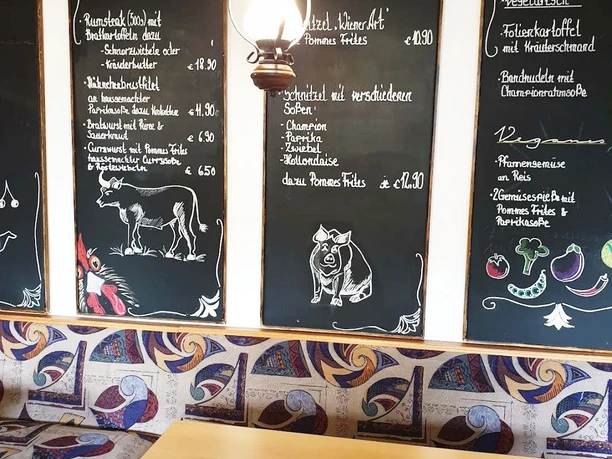 Rumsteak (300g) mit
Bratkartoffeln dazu
- Schmorzwiebeln oder
- Kräuterbutter € 18.90
Hähnchenbrustfilet
an hausgemachter
Paprikasoße dazu € 11.90
Bratwurst mit Püree &
Sauerkraut € 6.90
Currywurst mit Pommes Frites
hausgemachter Currysoße
& Röstzwiebeln € 6.50
"Wiener Art"
Pommes Frites € 10.90
Schnitzel mit verschiedenen
Soßen:
- Champion
- Paprika
- Zwiebel
- Hollondaise
dazu Pommes Frites je € 12.90
Vegetarisch
Folienkartoffel
mit Kräuterschmand
Bandnudeln mit
Championrahmsoße
Vegan
Pfannengemüse
an Reis
2 Gemüsespieße mit
Pommes Frites &
Paprikasoße